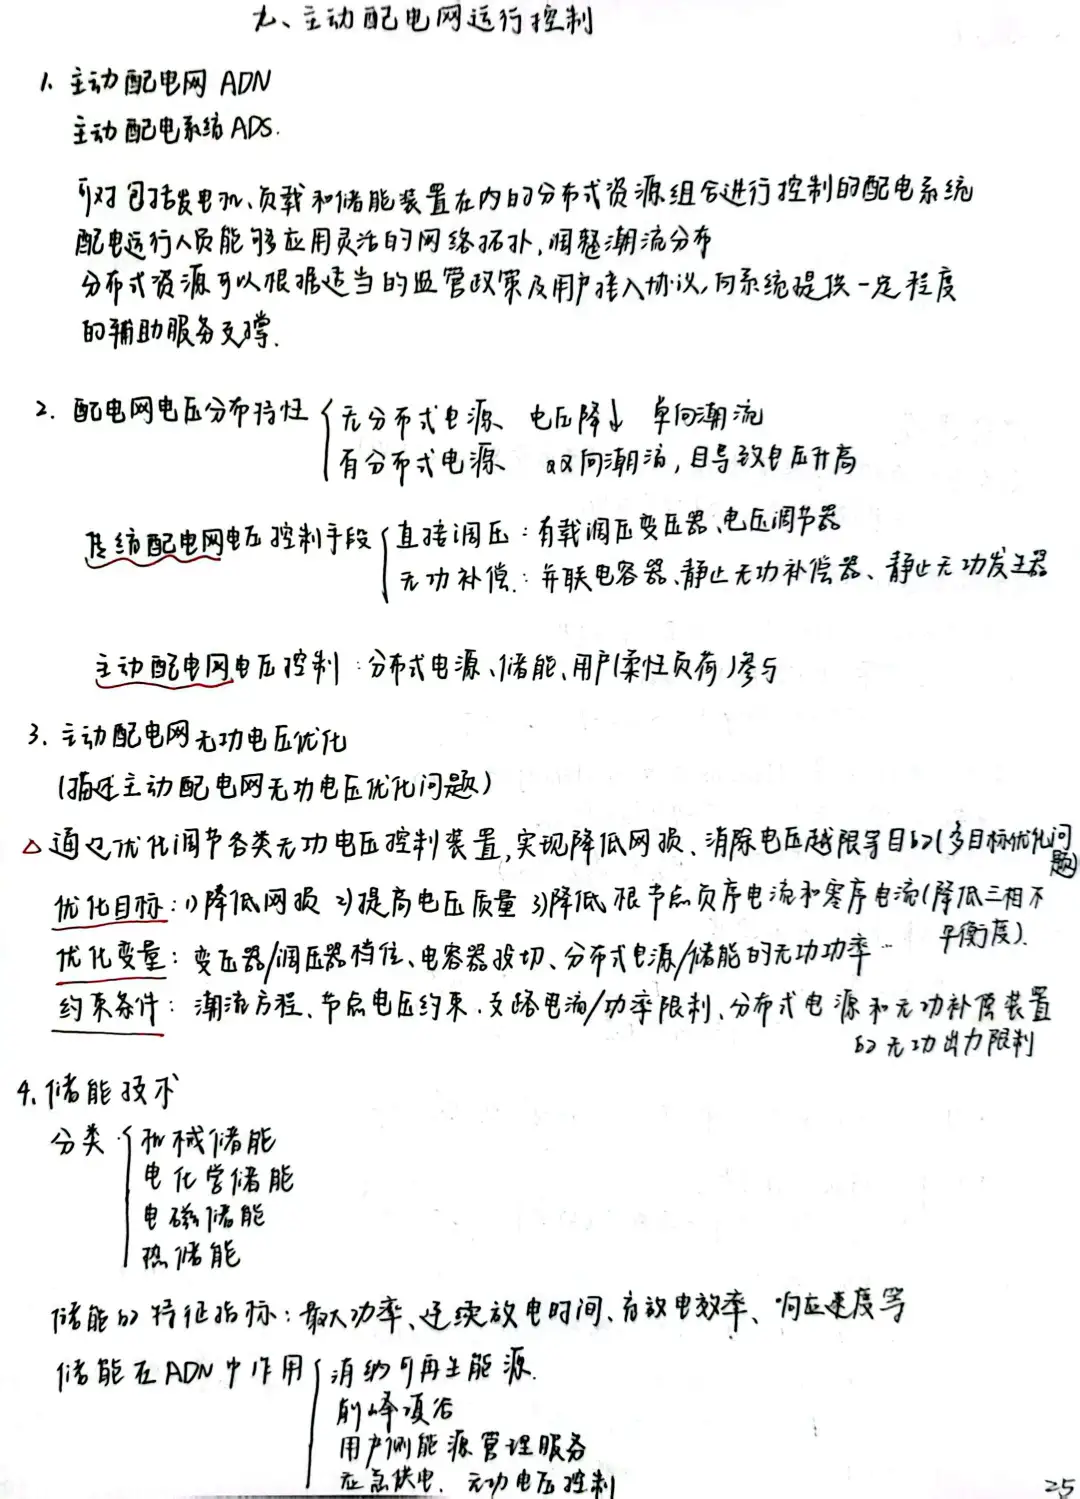 九、主动配电网运行控制
1. 主动配电网 ADN
主动配电系统 ADS.
可对包括发电机、负载和储能装置在内的分布式资源组合进行控制的配电系统
配电运行人员能够应用灵活的网络拓扑,调整潮流分布
分布式资源可以根据适当的监管政策及用户接入协议,向系统提供一定程度
的辅助服务支撑.
2. 配电网电压分布特性 { 无分布式电源 电压降↓ 单向潮流
有分布式电源 双向潮流,且导致电压升高
传统配电网电压控制手段 { 直接调压:有载调压变压器、电压调节器
无功补偿:并联电容器、静止无功补偿器、静止无功发生器
主动配电网电压控制:分布式电源、储能、用户(柔性负荷)参与
3. 主动配电网无功电压优化
(描述主动配电网无功电压优化问题)
△ 通过优化调节各类无功电压控制装置,实现降低网损、消除电压越限等目的(多目标优化问
题)
优化目标:1)降低网损 2)提高电压质量 3)降低根节点负序电流和零序电流(降低三相不
平衡度).
优化变量:变压器/调压器档位、电容器投切、分布式电源/储能的无功功率…
约束条件:潮流方程、节点电压约束、支路电流/功率限制、分布式电源和无功补偿装置
的无功出力限制
4. 储能技术
分类 { 机械储能
电化学储能
电磁储能
热储能
储能的特征指标:最大功率、连续放电时间、充放电效率、响应速度等
储能在ADN中作用 { 消纳可再生能源.
削峰填谷
用户侧能源管理服务
应急供电、无功电压控制
25